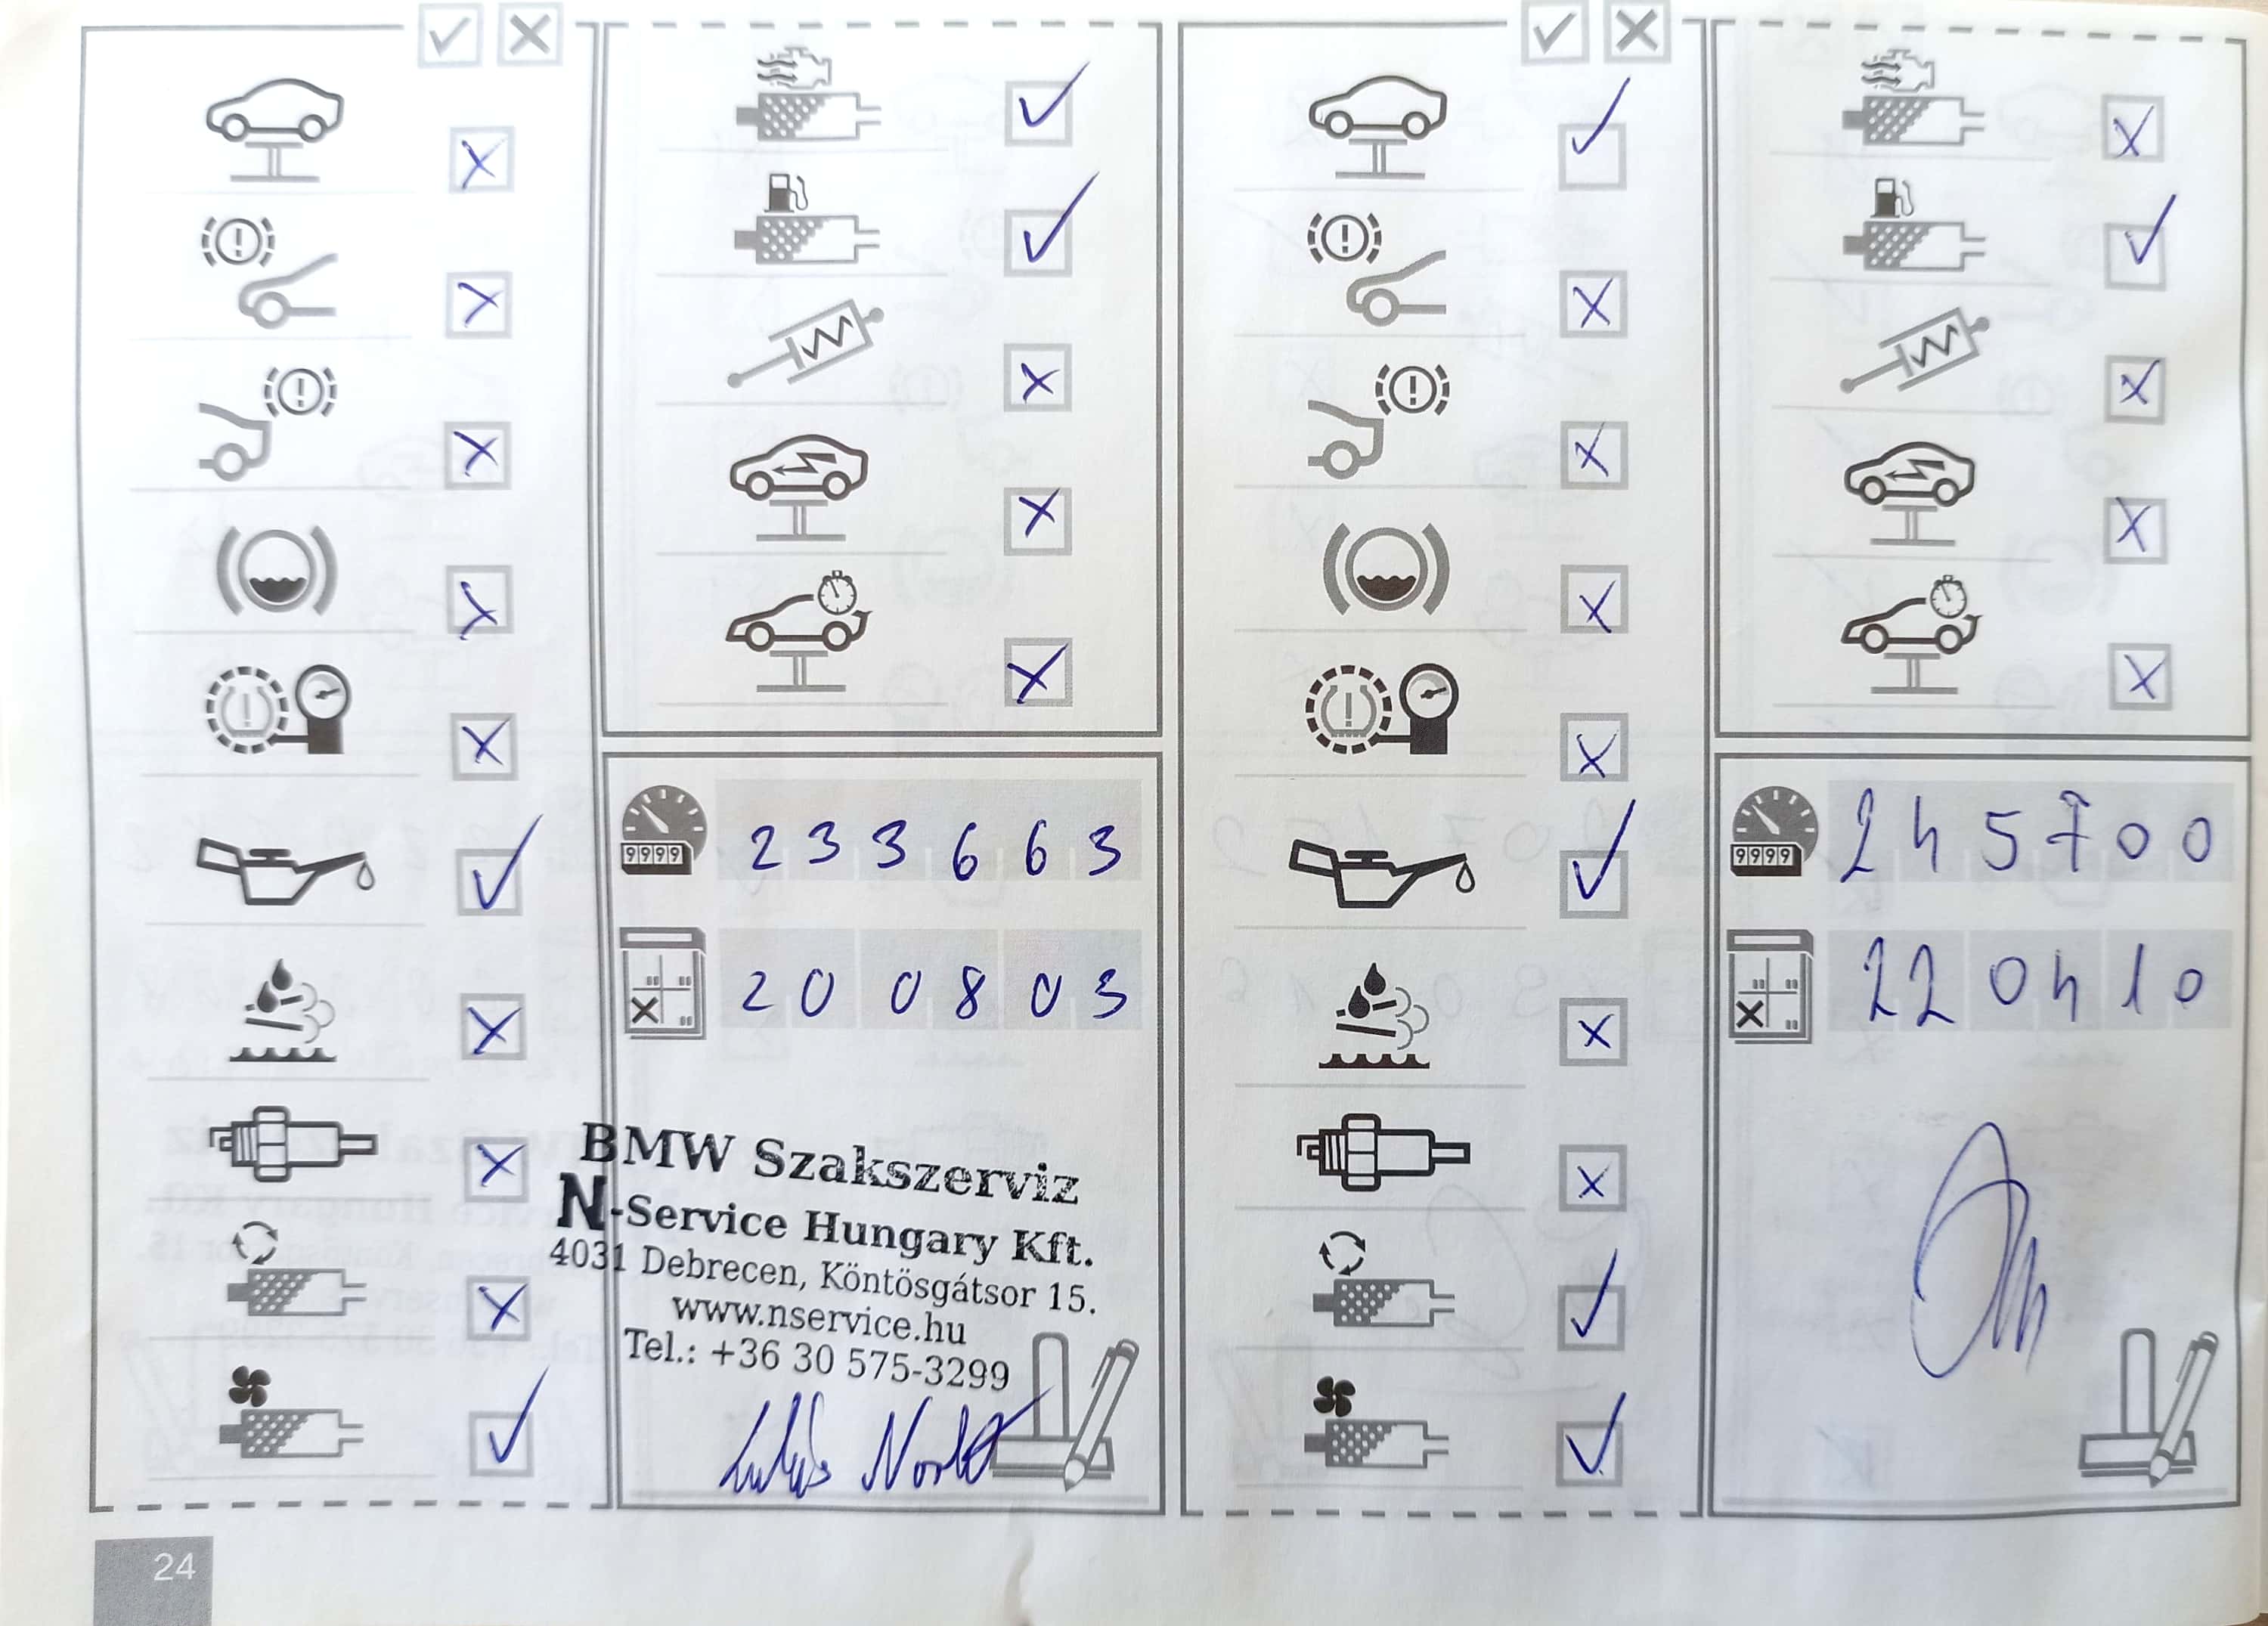 9999
233663
200803
BMW Szakszerviz
N-Service Hungary Kft.
4031 Debrecen, Köntösgátsor 15.
www.nservice.hu
Tel.: +36 30 575-3299
9999
245700
220410
24